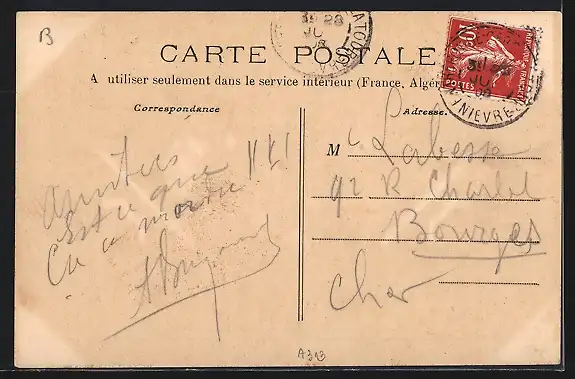 B
CARTE POSTALE
A utiliser seulement dans le service intérieur (France, Algér
Correspondance
Adresse
Amitiés
Est ce que
Ca a mordu !!!
M Labesse
92 R Charlet
Bourges
Cher
10c
POSTES
NIEVRE
A313